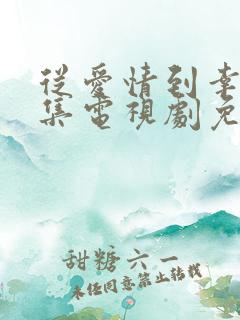 從愛情到幸
集電視劇免
甜糖六一
未任同意禁止转载